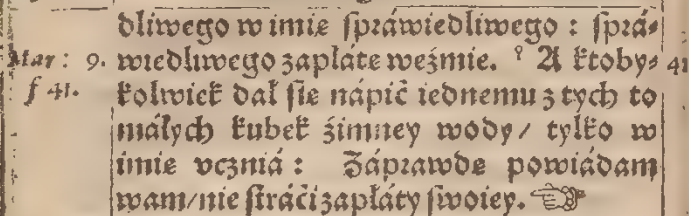 dliwego w imie ſpráwiedliwego : ſprá⸗
Mar : 9. wiedliwego zapłáte weźmie. ⁹ A ktoby⸗ 41
f 41. kolwiek dał ſie nápić iednemu z tych to
máłych kubek źimney wody / tylko w
imie vczniá : Záprawde powiádam
wam / nie ſtráći zapłáty ſwoiey. ☜